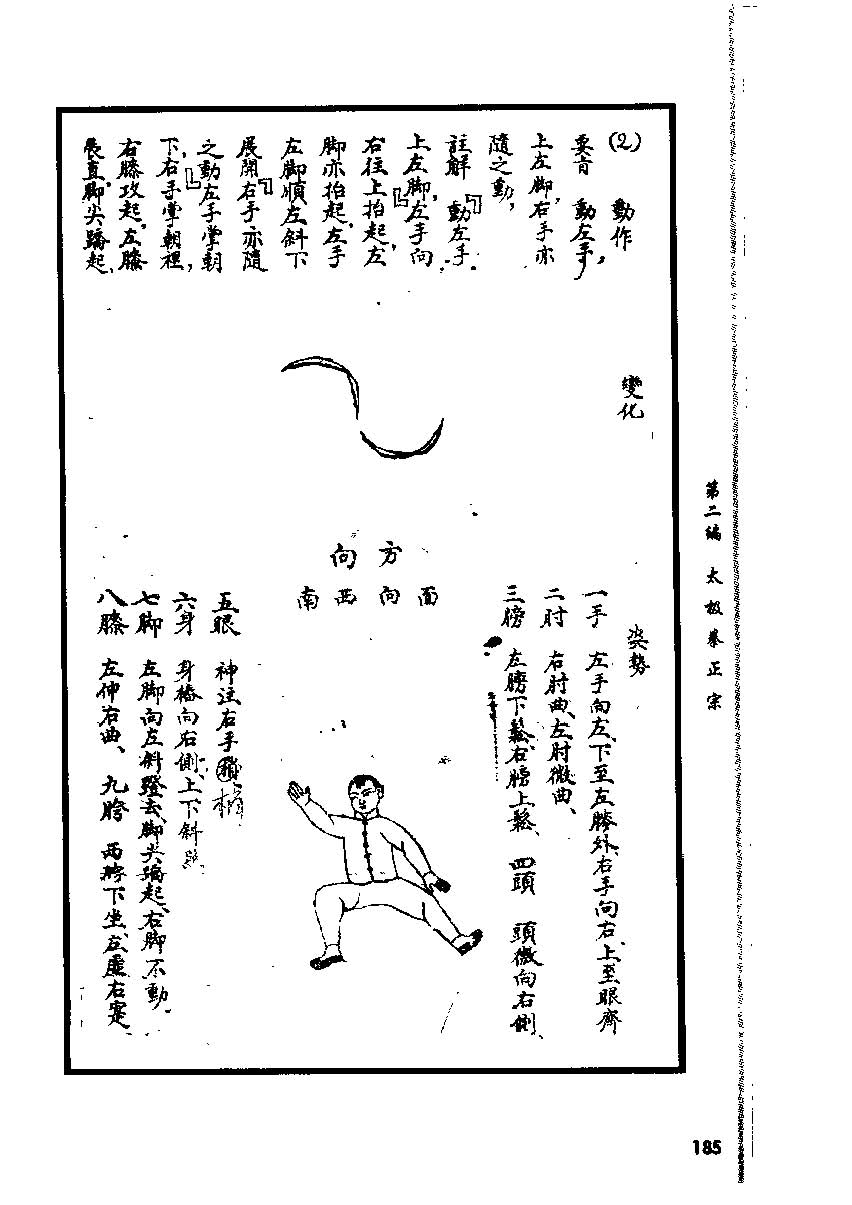 (2) 動作
要旨 動左手,
上左脚,右手亦
隨之動,
註解 『動左手.
上左脚,』左手向
右往上抬起,左
脚亦抬起,左手
左脚順左斜下
展開『右手亦隨
之動』左手掌朝
下,右手掌朝裡,
右膝攻起,左膝
展直,脚尖蹻起,
變化
方向
面向西南
姿勢
一手 左手向左、下至左膝外、右手向右、上至眼齊
二肘 右肘曲、左肘微曲、
三膀 左膀下鬆、右膀上鬆、 四頭 頭微向右側、
五眼 神注右手
六身 身樁向右側、上下斜
七脚 左脚向左斜蹬去、脚尖蹻起、右脚不動.
八膝 左伸右曲、 九胯 两胯下坐、左虛右寔、
第二編 太极拳正宗
185